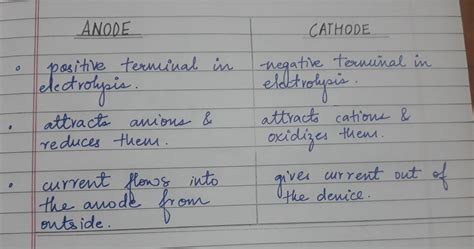 ANODE CATHODE
• positive terminal in negative terminal in
electrolysis. electrolysis.
• attracts anions & attracts cations &
reduces them. oxidizes them.
• current flows into gives current out of
the anode from the device.
outside.